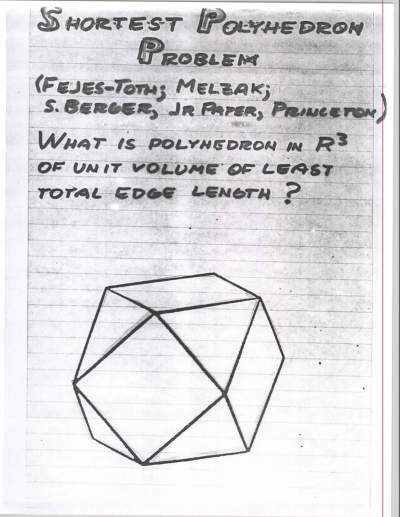 SHORTEST POLYHEDRON
PROBLEM
(FEJES-TOTH; MELZAK;
S. BERGER, JR PAPER, PRINCETON)
WHAT IS POLYHEDRON IN R³
OF UNIT VOLUME OF LEAST
TOTAL EDGE LENGTH ?